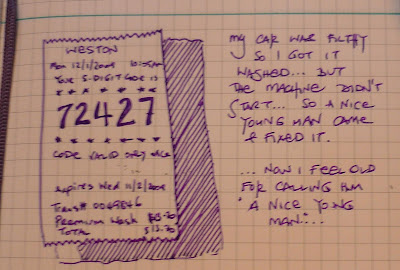 WESTON
Mon 12/1/2009 10:05am
Your 5-DIGIT CODE IS
72427
CODE VALID only once
expires Wed 11/2/2009
Trans# 0069846
Premium Wash
TOTAL
my CAR WAS FILTHY
SO I GOT IT
WASHED... BUT
THE MACHINE DIDN'T
START... SO A NICE
YOUNG MAN CAME
& FIXED IT.
... NOW I FEEL OLD
FOR CALLING HIM
"A NICE YONG
MAN"...